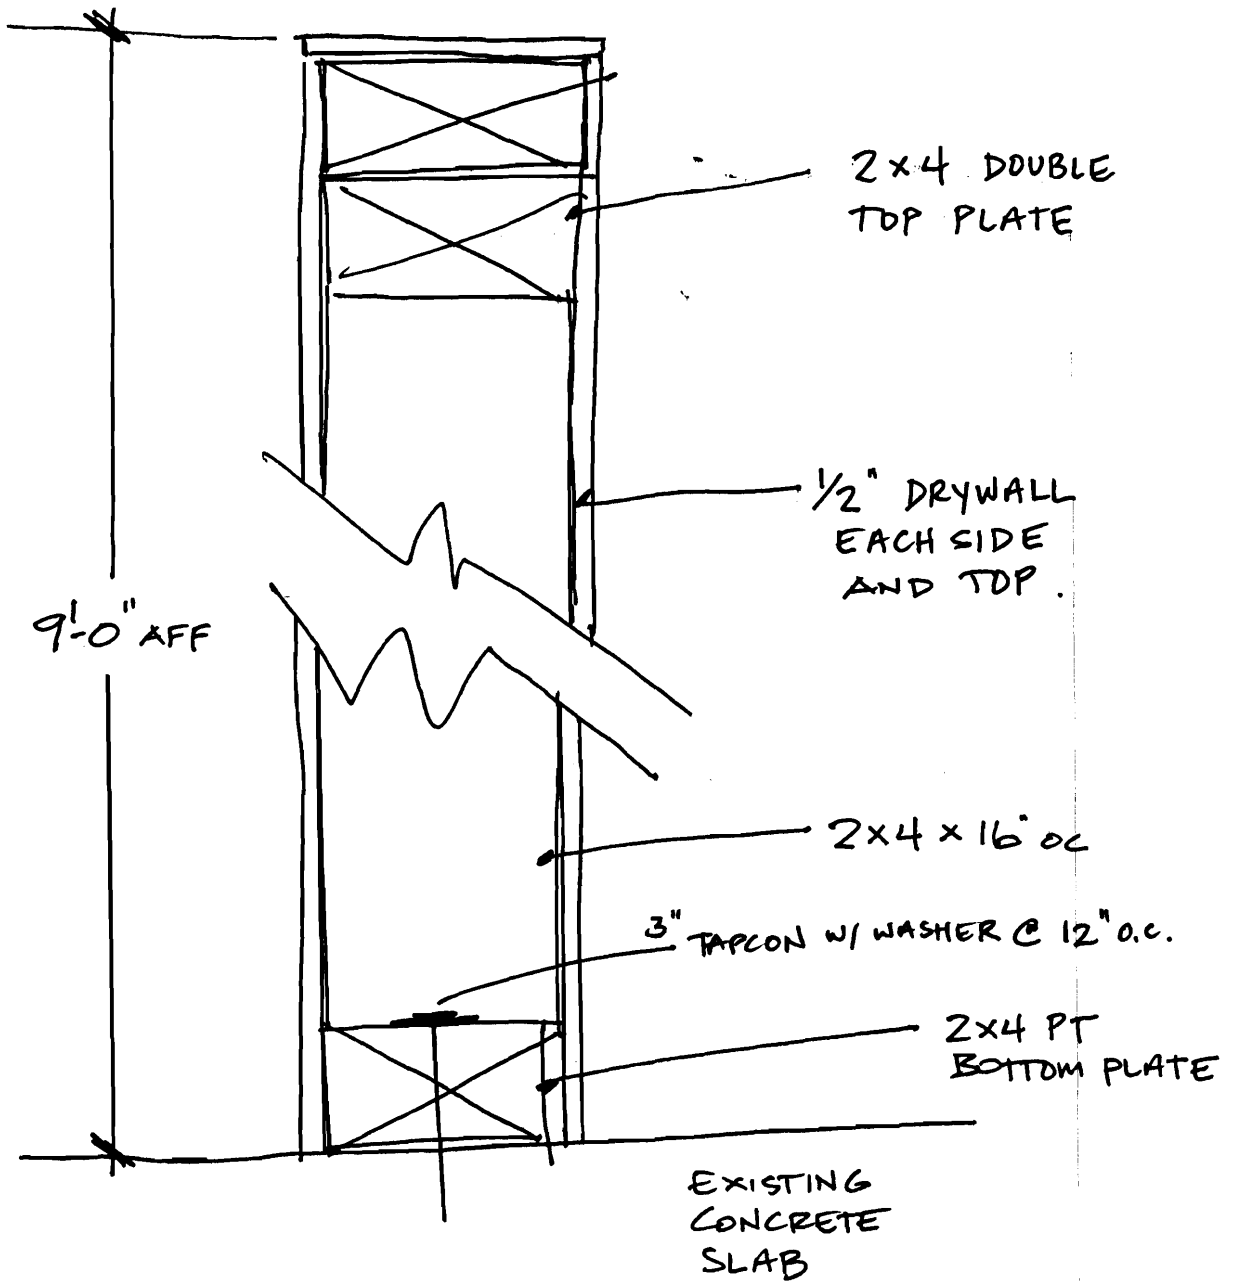 2x4 DOUBLE
TOP PLATE
1/2" DRYWALL
EACH SIDE
AND TOP.
9'-0" AFF
2x4 x 16" OC
3" TAPCON W/ WASHER @ 12" O.C.
2x4 PT
BOTTOM PLATE
EXISTING
CONCRETE
SLAB